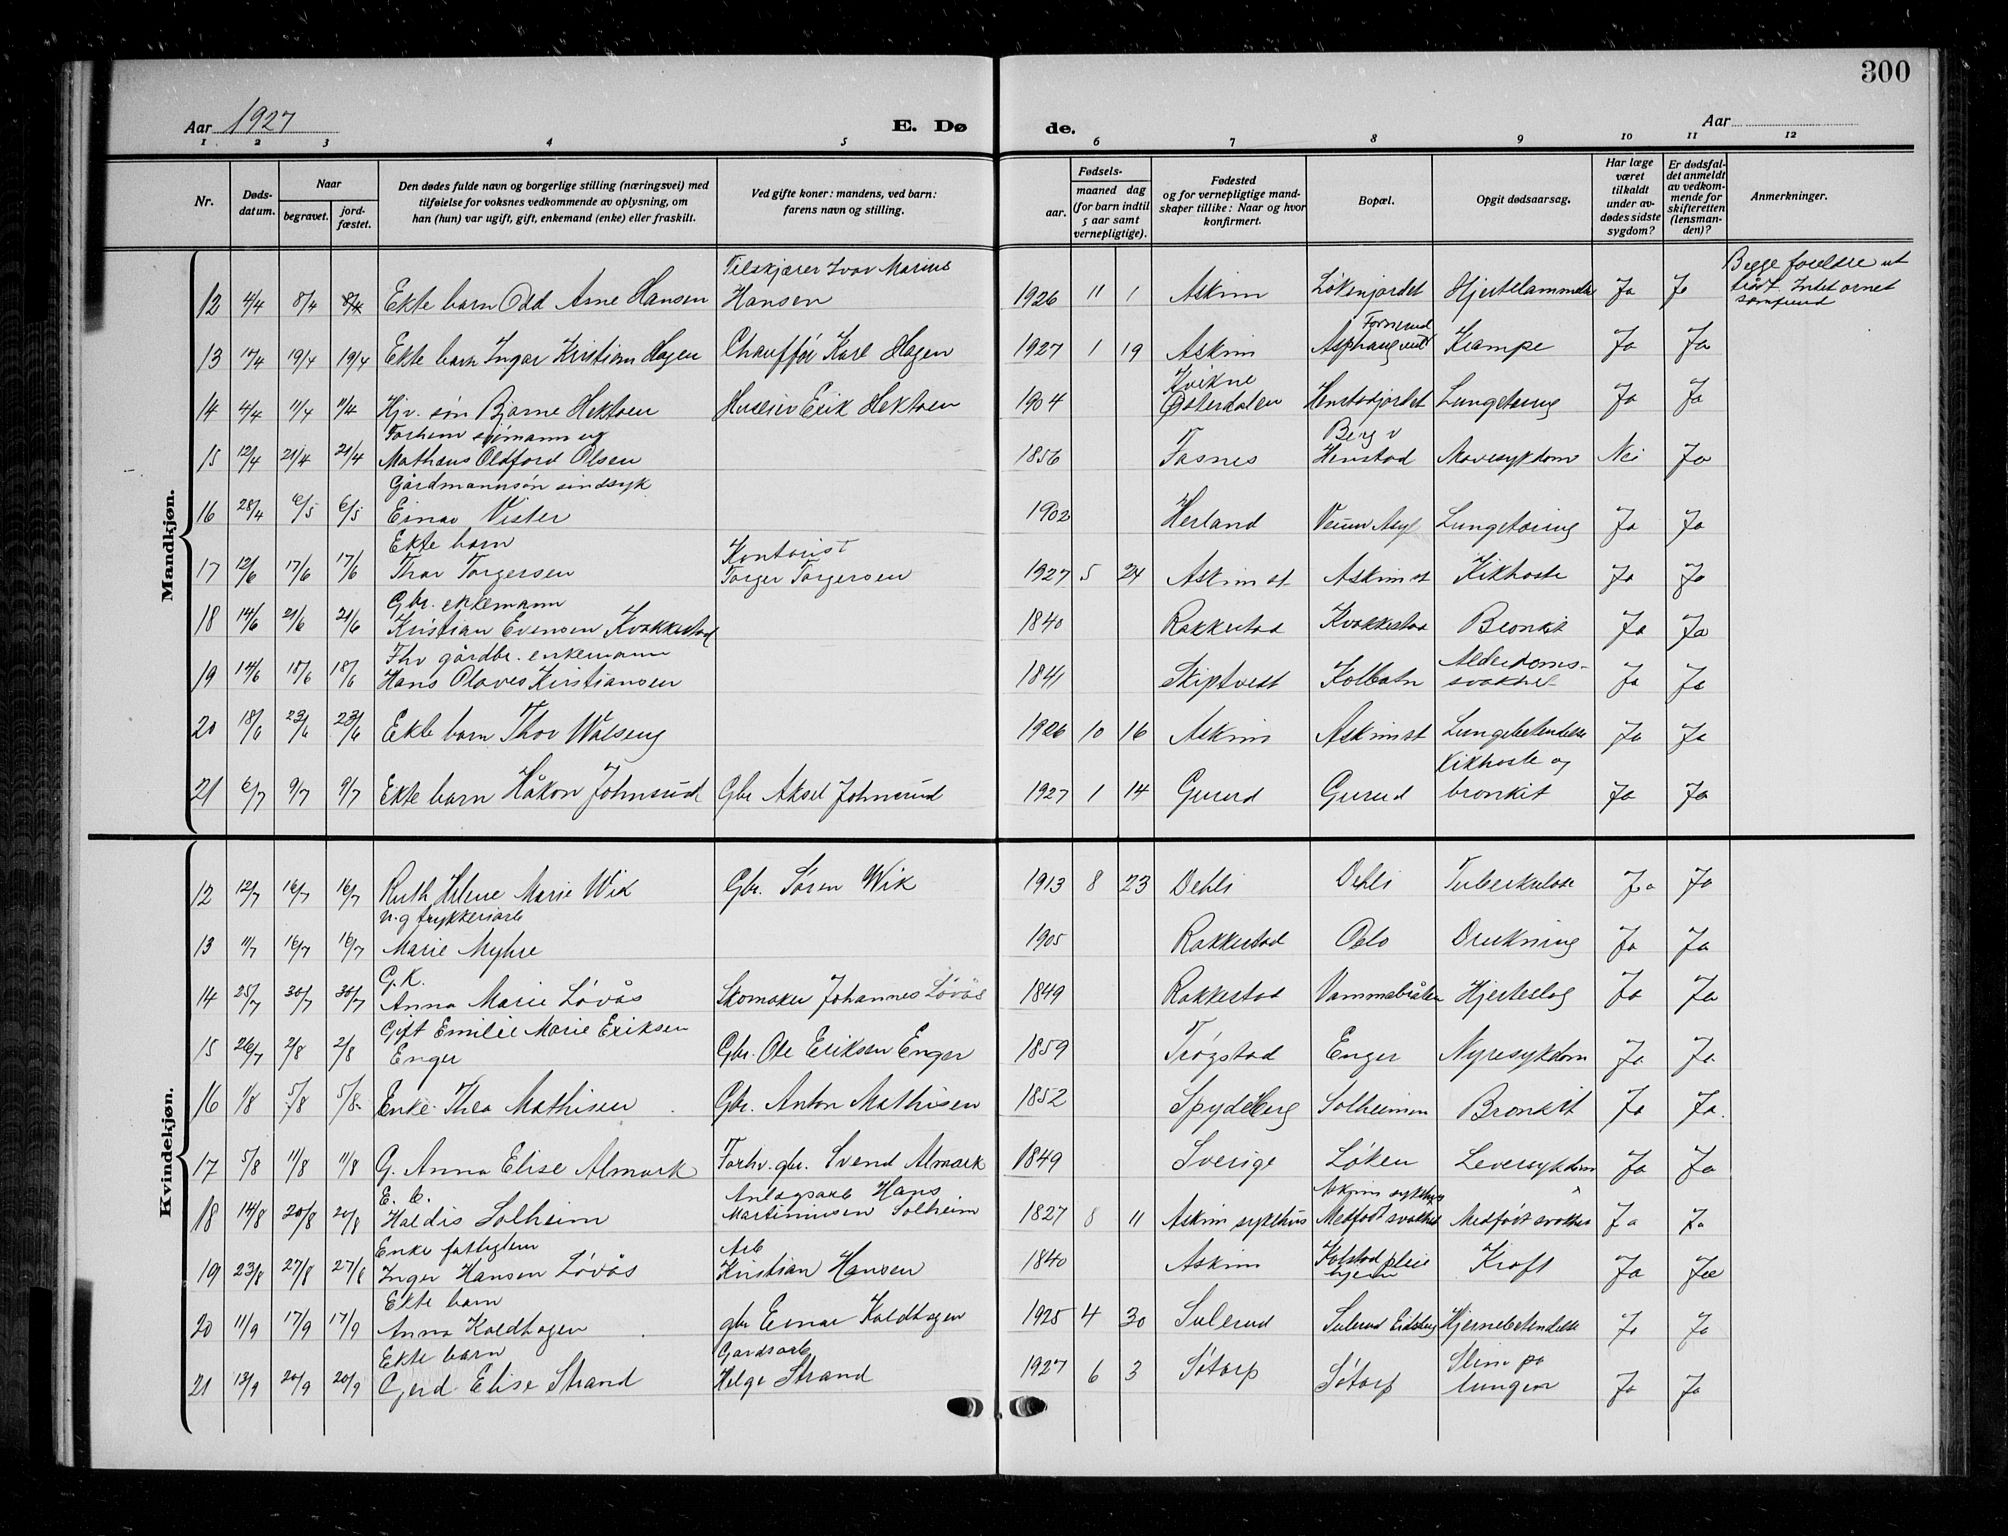 300
Aar 1927
E. Dø
de.
Aar
1 2 3 4 5 6 7 8 9 10 11 12
Nr.
Døds-
datum.
Naar
begravet.
jord-
fæstet.
Den dødes fulde navn og borgerlige stilling (næringsvei) med
tilføielse for voksnes vedkommende av oplysning, om
han (hun) var ugift, gift, enkemand (enke) eller fraskilt.
Ved gifte koner: mandens, ved barn:
farens navn og stilling.
Fødsels-
aar.
maaned dag
(for barn indtil
5 aar samt
vernepligtige).
Fødested
og for vernepligtige mand-
skaper tillike: Naar og hvor
konfirmert.
Bopæl.
Opgit dødsaarsag.
Har læge
været
tilkaldt
under av-
dødes sidste
sygdom?
Er dødsfal-
det anmeldt
av vedkom-
mende for
skifteretten
(lensman-
den)?
Anmerkninger.
Mandkjøn.
Tilskjærer Ivar Marius
Begge foreldre ut
12 4/4 8/4 8/4 Ekte barn Odd Arne Hansen Hansen 1926 11 1 Askim Løkenjordet Hjertelammelse Ja Ja
samfund
Fornerud
13 17/4 19/4 19/4 Ekte barn Ingar Kristian Hagen Chauffør Karl Hagen 1927 1 19 Askim Krampe Ja Ja
Kvikne
14 4/4 11/4 11/4 Hjv. søn Bjarne Hektoen Huseier Erik Hektoen 1904 Østerdalen Henstadjordet Lungetæring Ja Ja
Forhenv sjømann ug
Berg v
15 12/4 21/4 21/4 Mathæus Oldford Olsen 1856 Henstad Mavesykdom Nei Ja
Gårdmannssøn sindsyk
16 28/4 6/5 6/5 Einar Vister 1902 Herland Lungetæring Ja Ja
Ekte barn
Kontorist
17 12/6 17/6 17/6 Thor Torgersen Torger Torgersen 1927 5 24 Askim st. Askim st Kikhoste Ja Ja
Gbr. enkemann
18 14/6 21/6 21/6 Kristian Evensen Kvakkestad 1840 Rakkestad Kvakkestad Bronkit Ja Ja
Fhv gårdbr. enkemann
Alderdoms-
19 14/6 18/6 18/6 Hans Olaves Kristiansen 1841 Skiptvedt Kolbotn svakhet Ja Ja
20 18/6 23/6 23/6 Ekte barn Thor Walseng 1926 10 16 Askim Askim st Lungebetendelse Ja Ja
Kikhoste og
21 6/7 9/7 9/7 Ekte barn Håkon Johnsrud Gbr Aksel Johnsrud 1927 1 14 Gurud Gurud bronkit Ja Ja
Kvindekjøn.
12 12/7 16/7 16/7 Ruth Helene Marie Wik Gbr. Søren Wik 1913 8 23 Dehli Dehli Tuberkulose Ja Ja
u.g trykkeriarb
13 11/7 16/7 16/7 Marie Myhre 1905 Rakkestad Oslo Drukning Ja Ja
G.K.
14 25/7 30/7 30/7 Anna Marie Løvås Skomaker Johannes Løvås 1849 Rakkestad Vammebråten Hjerteslag Ja Ja
Gift Emilie Marie Eriksen
15 26/7 2/8 2/8 Enger Gbr. Ole Eriksen Enger 1859 Trøgstad Enger Nyresykdom Ja Ja
16 1/8 5/8 5/8 Enke Thea Mathisen Gbr. Anton Mathisen 1852 Spydeberg Solheimen Bronkit Ja Ja.
17 5/8 11/8 11/8 G. Anna Elise Almark Forhv. gbr. Svend Almark 1849 Sverige Løken Leversykdom Ja Ja
E. b.
Anlægsarb Hans
Askim sykehus
18 14/8 20/8 20/8 Haldis Solheim Martiniusen Solheim 1827 8 11 Askim sykehus Medfødt svakhet Medfødt svakhet Ja Ja
Enke fattiglem
Arb
19 23/8 27/8 27/8 Inger Hansen Løvås Kristian Hansen 1840 Askim Kolstad pleie Kræft Ja Ja
hjem
Ekte barn
20 11/9 17/9 17/9 Anna Kaldhagen gbr Einar Kaldhagen 1925 4 30 Sulerud Sulerud Eidsberg Hjernebetendelse Ja Ja
Ekte barn
Gårdsarb
Slim på
21 13/9 20/9 20/9 Gerd Elise Strand Helge Strand 1927 6 3 Søtorp Søtorp lungen Ja Ja